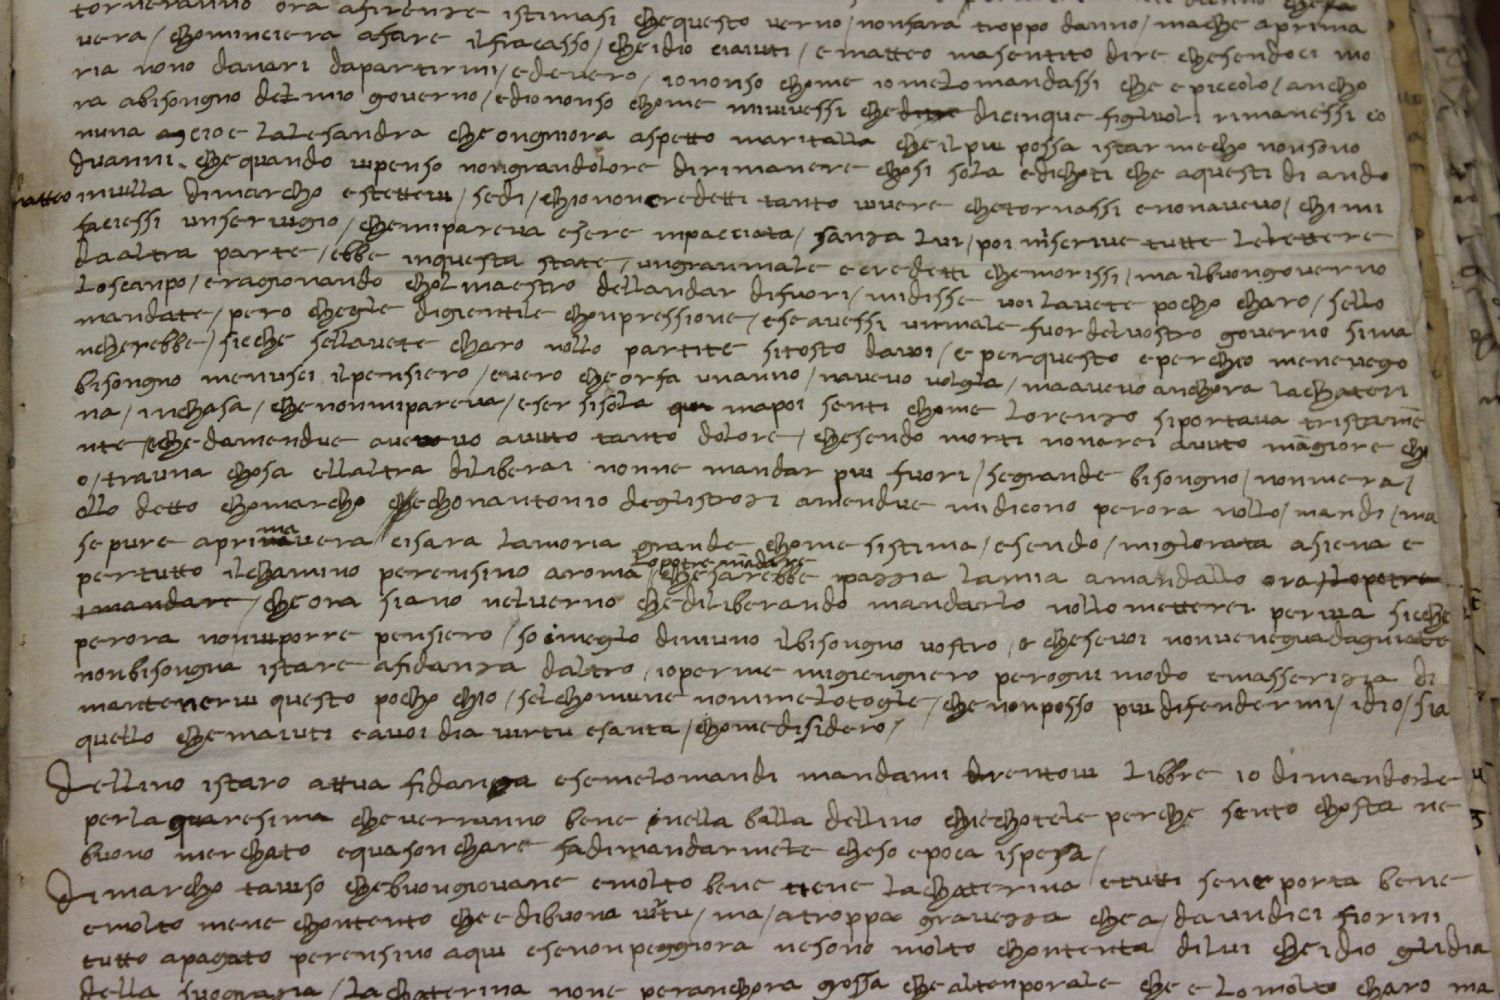 torneranno ora afirenze istimasi chequesto verno / nonsara troppo danno / mache aprima
vera / chominciera afare ilfracasso / cheidio ciaiuti / ematteo masentito dire chesendoci mo
ria nono danari dapartirmi / edevero / iononso chome iomelomandassi che epiccolo / ancho
ra abisongno delmio governo / edionnonso chome miuivessi che dicinque figluoli rimanessi co
nuna cioe lalesandra che ongniora aspetto maritalla cheilpiu possa istar mecho nonsono
duanni . chequando vipenso nongrandolore dirimanere chosi sola edichoti che aquesti di ando
matteo invilla dimarcho estettevi / sedi / chionon credetti tanto vivere chetornassi enonavevo / chimi
faciessi unservigio / chemipareva esere inpacciata / sanza lui / poi miscrive tutte lelettere
daaltra parte / ebbe inquesta state / ungranmale ecredetti chemorissi / ma ilbuongoverno
loscanpo / eragionando cholmaestro dellandar difuori / midisse voi lavete pocho charo / sello
mandate / pero chegle digientile chonpressione / eseavessi unmale fuor delvostro governo sima
ncherebbe / sieche sellavete charo nollo partite sitosto davoi / e perquesto eperchio menevego
bisongno menusci ilpensiero / evero cheorfa unanno / navevo volgla / maavevo anchora lachateri
na / inchasa / chenonmipareva / eser sisola mapoi senti chome lorenzo siportava tristame
nte chedamendue avevo avuto tanto dolore / chesendo morti nonarei avuto magiore ch
o / trauna chosa ellaltra diliberai nonne mandar piu fuori / segrande bisongno / nonmera /
ollo detto chomarcho echonantonio deglistrozi amendue midicono perora nollo / mandi / ma
se pure aprimavera cisara lamoria grande chome sistima / esendo / migliorata asiena e
pertutto ilchamino perensino aroma lo potre mandare / chesarebbe pazzia lamia amandallo ora / lopotre
mandare / cheora siano nelverno chediliberando mandarlo nollometterei pervia sieche
perora nonviporre pensiero / so imeglo diniuno ilbisongno vostro / e chesevoi nonveneguadagniate
nonbisongna istare afidanza daltro , ioperme migiengnero perogni modo emasserizia di
mantenervi questo pocho chio / selchomune nonmelotogle / chenonposso piu difendermi / idio / sia
quello chemaiuti eavoi dia virtu esanta / chomedisidero /
Dellino istaro attua fidanza esemelomandi mandami drentovi libbre 10 dimandorle
perla quaresima cheverranno bene inella balla dellino chiechotele perche sento chosta ne
buono merchato equasonchare fadimandarmele cheso epoca ispesa /
Di marcho taviso chebuongiovane emolto bene tiene lachaterina etutti sene porta bene
emolto mene chontento cheedibuona virtu / ma / atroppa gravezza chea / daundici fiorini
tutto apagato perensino aqui esenonpeggiora nesono molto chontenta dilui cheidio glidia
della suograzia / lachaterina none peranchora grossa chealtenporale che elomolto charo ma